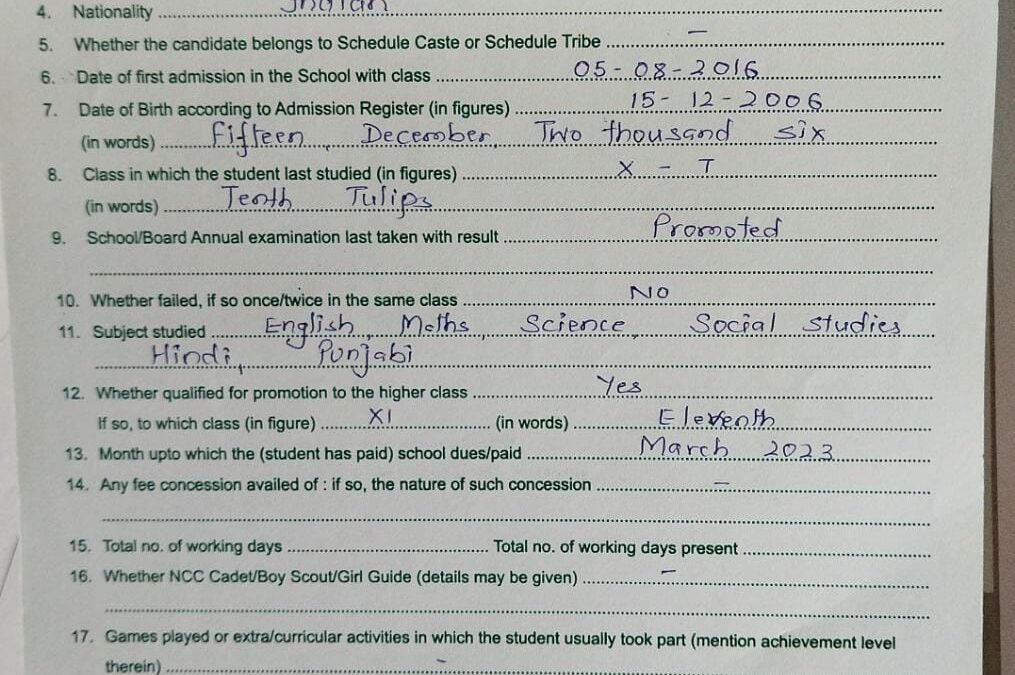 4. Nationality .......... Indian
5. Whether the candidate belongs to Schedule Caste or Schedule Tribe .......... –
6. Date of first admission in the School with class .......... 05-08-2016
7. Date of Birth according to Admission Register (in figures) .......... 15-12-2006
(in words) .......... Fifteen, December, Two thousand six
8. Class in which the student last studied (in figures) .......... X - T
(in words) .......... Tenth Tulips
9. School/Board Annual examination last taken with result .......... Promoted
10. Whether failed, if so once/twice in the same class .......... NO
11. Subject studied .......... English, Maths, Science, Social studies
Hindi, Punjabi
12. Whether qualified for promotion to the higher class .......... Yes
If so, to which class (in figure) .......... XI .......... (in words) .......... Eleventh
13. Month upto which the (student has paid) school dues/paid .......... March 2023
14. Any fee concession availed of : if so, the nature of such concession .......... –
15. Total no. of working days .......... Total no. of working days present ..........
16. Whether NCC Cadet/Boy Scout/Girl Guide (details may be given) .......... –
17. Games played or extra/curricular activities in which the student usually took part (mention achievement level
therein) .......... –